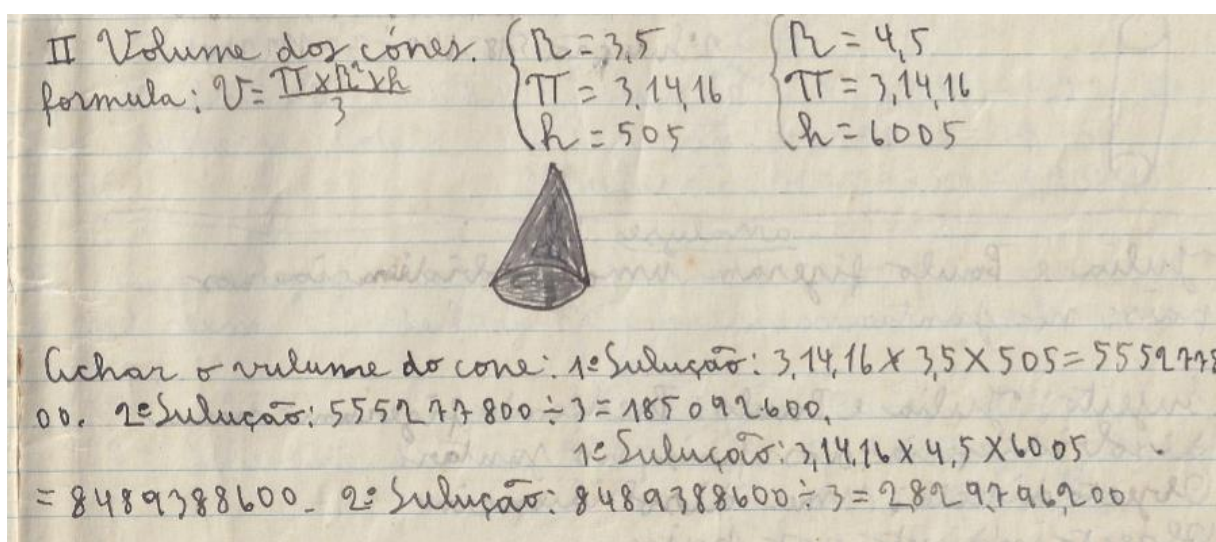 II Volume dos cónes. R = 3,5 R = 4,5
formula: V = π x R² x h / 3 π = 3,14,16 π = 3,14,16
h = 505 h = 6005
Achar o vulume do cone: 1ª Sulução: 3,14,16 x 3,5 x 505 = 5552778
00. 2ª Sulução: 555277800 ÷ 3 = 185092600.
1ª Sulução: 3,14,16 x 4,5 x 6005
= 8489388600. 2ª Sulução: 8489388600 ÷ 3 = 2829796200